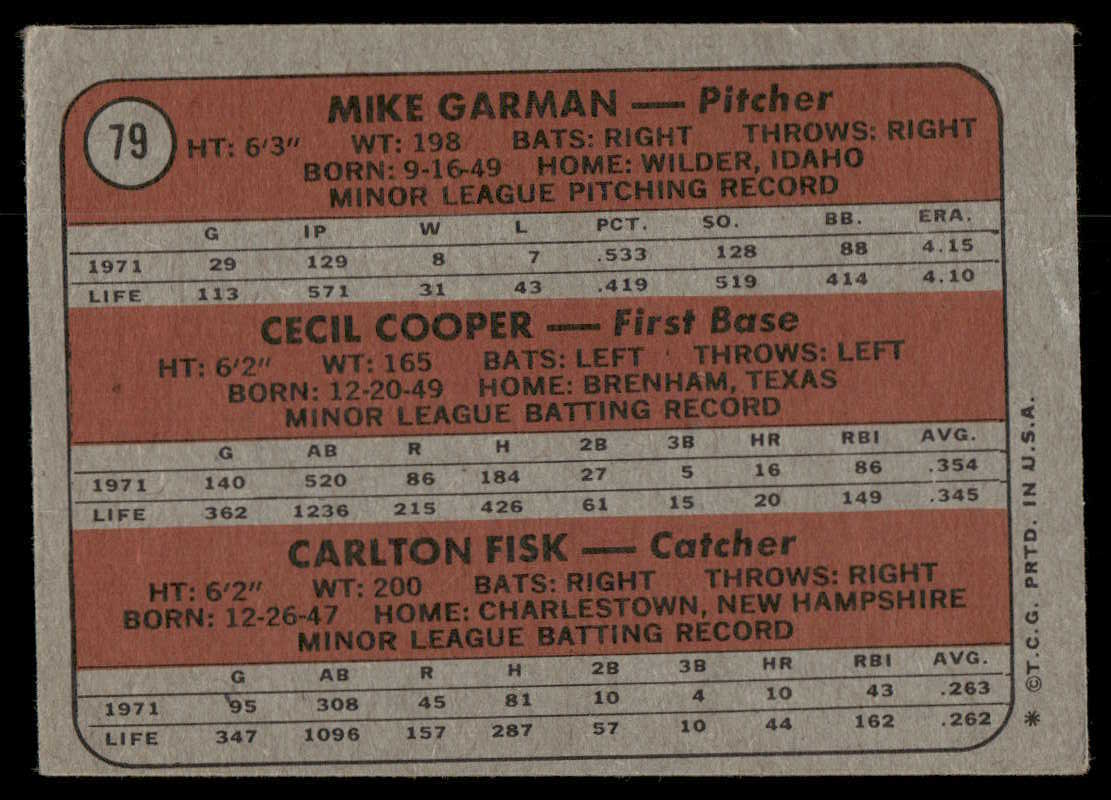 79
MIKE GARMAN — Pitcher
HT: 6'3" WT: 198 BATS: RIGHT THROWS: RIGHT
BORN: 9-16-49 HOME: WILDER, IDAHO
MINOR LEAGUE PITCHING RECORD
G IP W L PCT. SO. BB. ERA.
1971 29 129 8 7 .533 128 88 4.15
LIFE 113 571 31 43 .419 519 414 4.10
CECIL COOPER — First Base
HT: 6'2" WT: 165 BATS: LEFT THROWS: LEFT
BORN: 12-20-49 HOME: BRENHAM, TEXAS
MINOR LEAGUE BATTING RECORD
G AB R H 2B 3B HR RBI AVG.
1971 140 520 86 184 27 5 16 86 .354
LIFE 362 1236 215 426 61 15 20 149 .345
CARLTON FISK — Catcher
HT: 6'2" WT: 200 BATS: RIGHT THROWS: RIGHT
BORN: 12-26-47 HOME: CHARLESTOWN, NEW HAMPSHIRE
MINOR LEAGUE BATTING RECORD
G AB R H 2B 3B HR RBI AVG.
1971 95 308 45 81 10 4 10 43 .263
LIFE 347 1096 157 287 57 10 44 162 .262
* ©T.C.G. PRTD. IN U.S.A.